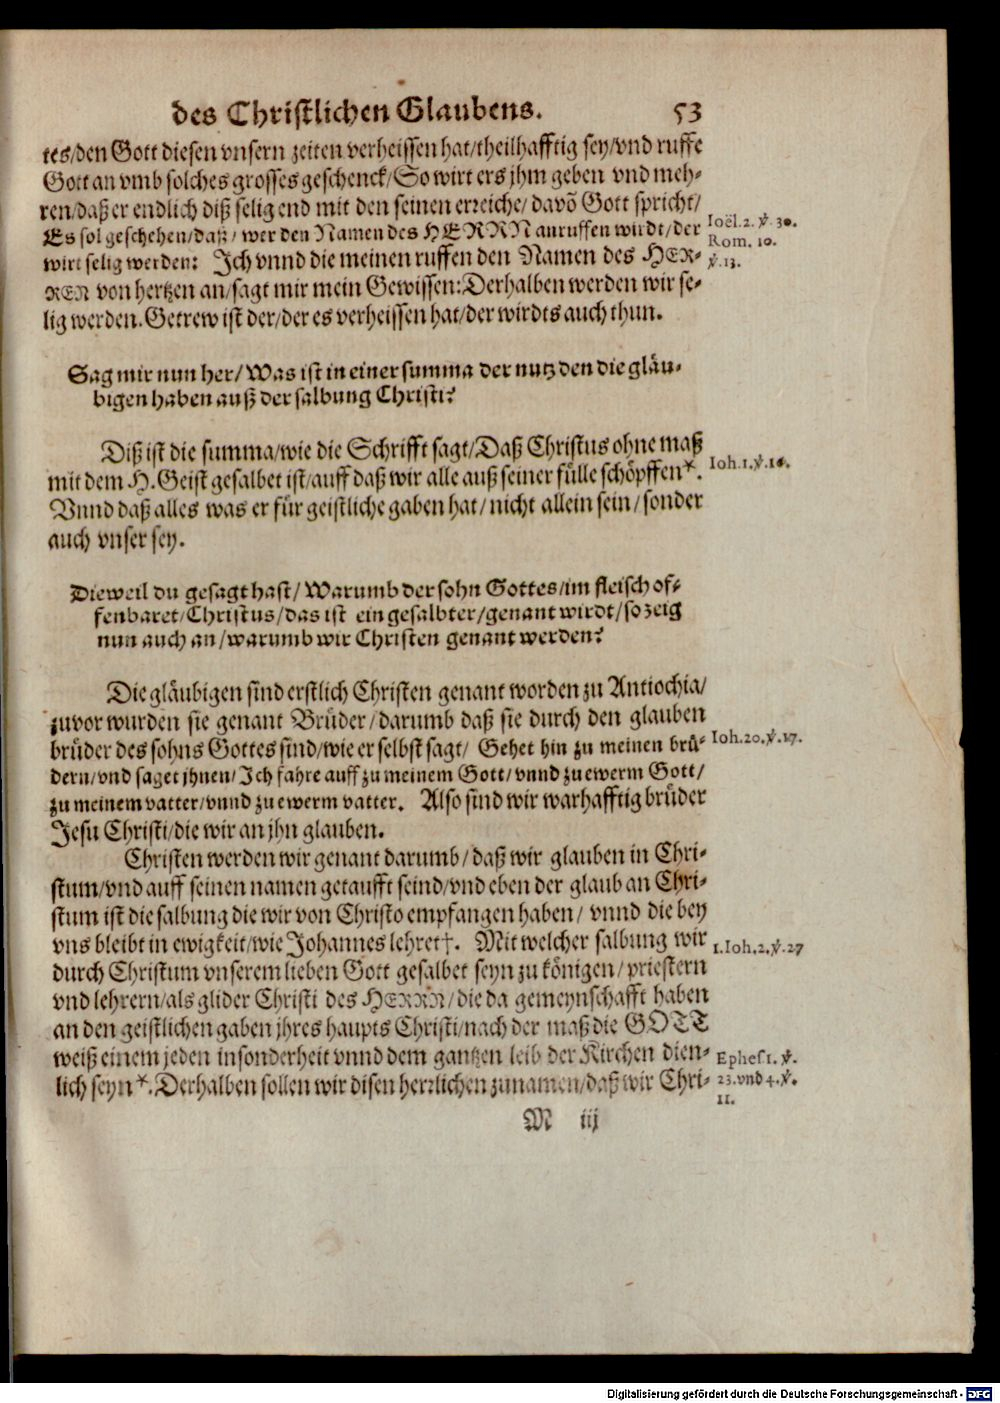 des Christlichen Glaubens. 53
tes/den Gott diesen vnsern zeiten verheissen hat/theilhafftig sey/vnd ruffe
Gott an vmb solches grosses geschenck/So wirt ers jhm geben vnd meh-
ren/daß er endlich diß selig end mit den seinen erreiche/davõ Gott spricht/
Es sol geschehen/daß/wer den Namen des HERRN anruffen wirdt/der
wirt selig werden: Ich vnnd die meinen ruffen den Namen des HER-
REN von hertzen an/sagt mir mein Gewissen: Derhalben werden wir se-
lig werden. Getrew ist der/der es verheissen hat/der wirdts auch thun.
Ioël. 2. ℣. 30.
Rom. 10.
℣. 13.
Sag mir nun her/Was ist in einer summa der nutz den die gläu-
bigen haben auß der salbung Christi?
Diß ist die summa/wie die Schrifft sagt/Daß Christus ohne maß
mit dem H. Geist gesalbet ist/auff daß wir alle auß seiner fülle schöpffen*.
Vnnd daß alles was er für geistliche gaben hat/nicht allein sein/sonder
auch vnser sey.
Ioh. 1. ℣. 16.
Dieweil du gesagt hast/Warumb der sohn Gottes/im fleisch of-
fenbaret/Christus/das ist ein gesalbter/genant wirdt/so zeig
nun auch an/warumb wir Christen genant werden?
Die gläubigen sind erstlich Christen genant worden zu Antiochia/
zuvor wurden sie genant Brüder/darumb daß sie durch den glauben
brüder des sohns Gottes sind/wie er selbst sagt/ Gehet hin zu meinen brü-
dern/vnd saget jhnen/Ich fahre auff zu meinem Gott/vnnd zu ewerm Gott/
zu meinem vatter/vnnd zu ewerm vatter. Also sind wir warhafftig brüder
Jesu Christi/die wir an jhn glauben.
Ioh. 20. ℣. 17.
Christen werden wir genant darumb/daß wir glauben in Chri-
stum/vnd auff seinen namen getaufft seind/vnd eben der glaub an Chri-
stum ist die salbung die wir von Christo empfangen haben/ vnnd die bey
vns bleibt in ewigkeit/wie Johannes lehret†. Mit welcher salbung wir
durch Christum vnserem lieben Gott gesalbet seyn zu königen/priestern
vnd lehrern/als glider Christi des HERRN/die da gemeynschafft haben
an den geistlichen gaben jhres haupts Christi/nach der maß die GOTT
weiß einem jeden insonderheit vnnd dem gantzen leib der Kirchen dien-
lich seyn*. Derhalben sollen wir disen herrlichen zunamen/daß wir Chri-
1. Ioh. 2. ℣. 27
Ephes 1. ℣.
23. vnd 4. ℣.
11.
M iij
Digitalisierung gefördert durch die Deutsche Forschungsgemeinschaft - DFG